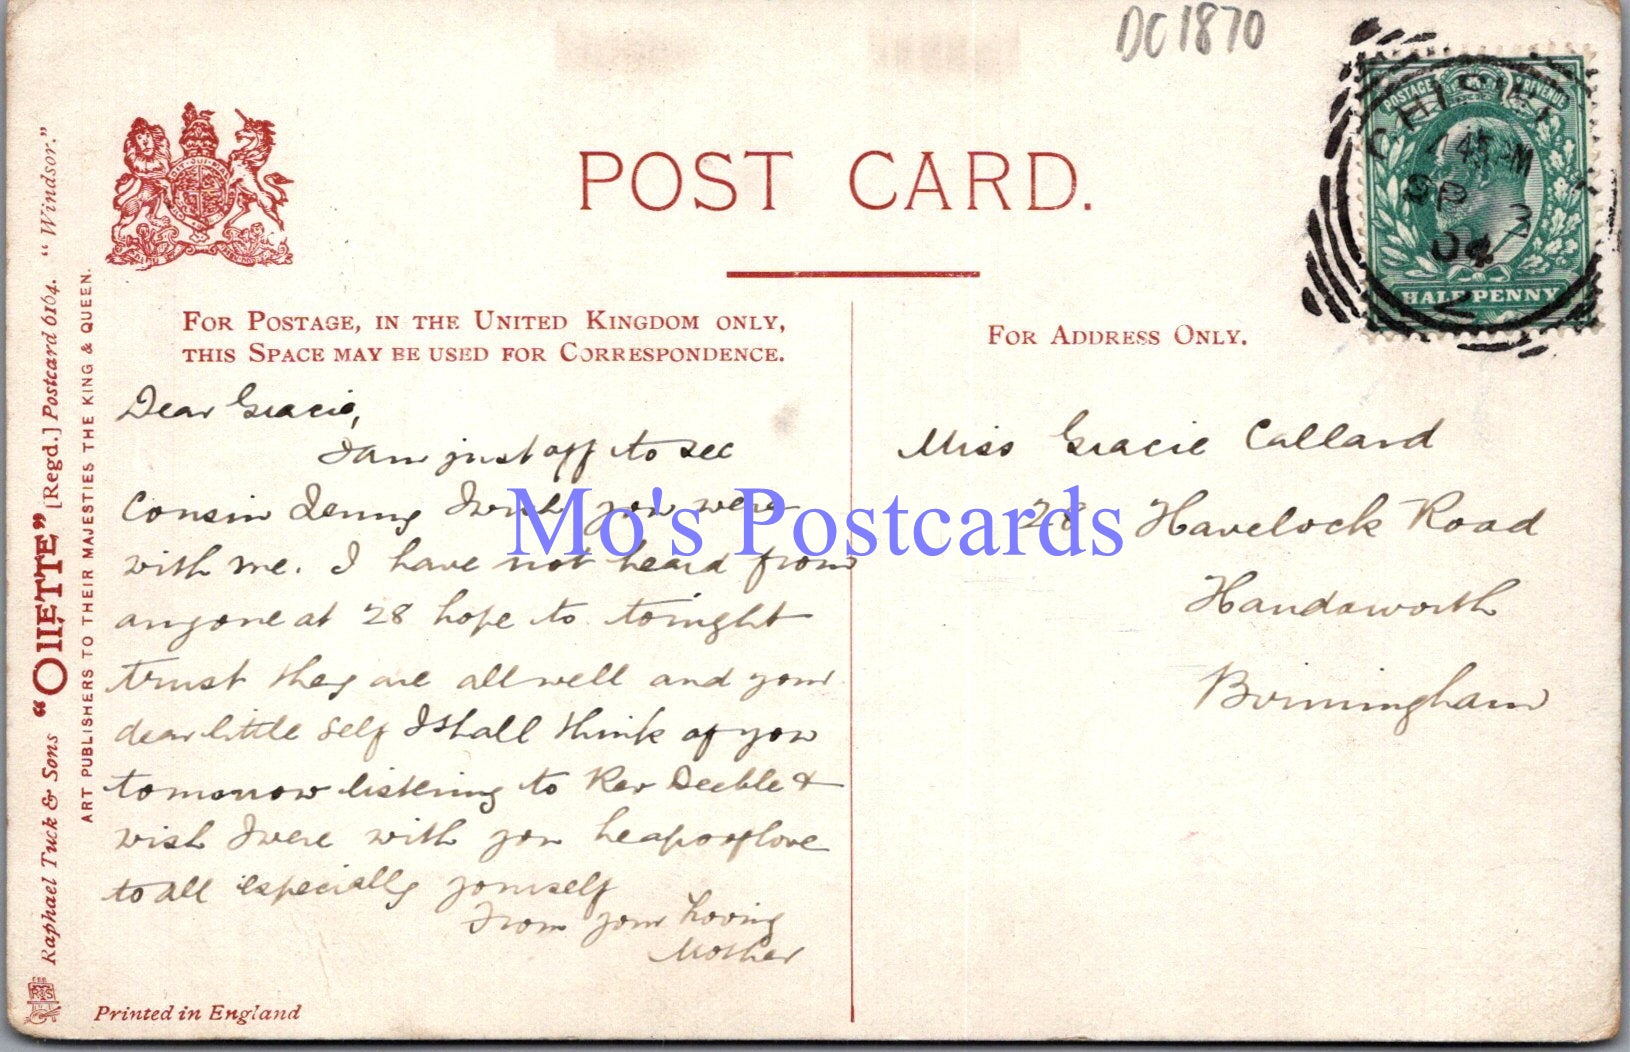 DC1870
POST CARD.
POSTAGE REVENUE
CHISWI
45 PM
SP 3
04
HALFPENNY
FOR POSTAGE, IN THE UNITED KINGDOM ONLY,
THIS SPACE MAY BE USED FOR CORRESPONDENCE.
FOR ADDRESS ONLY.
Dear Gracie,
I am just off to see
Cousin Jenny I wish you were
with me. I have not heard from
anyone at 28 hope to tonight
trust they are all well and your
dear little self I shall think of you
tomorrow listening to Rev Deeble &
wish I were with you heaps of love
to all especially yourself
From your loving
Mother
Miss Gracie Callard
28 Havelock Road
Handsworth
Birmingham
Mo's Postcards
Raphael Tuck & Sons "OILETTE" [Regd.] Postcard 6164. "Windsor."
ART PUBLISHERS TO THEIR MAJESTIES THE KING & QUEEN.
Printed in England